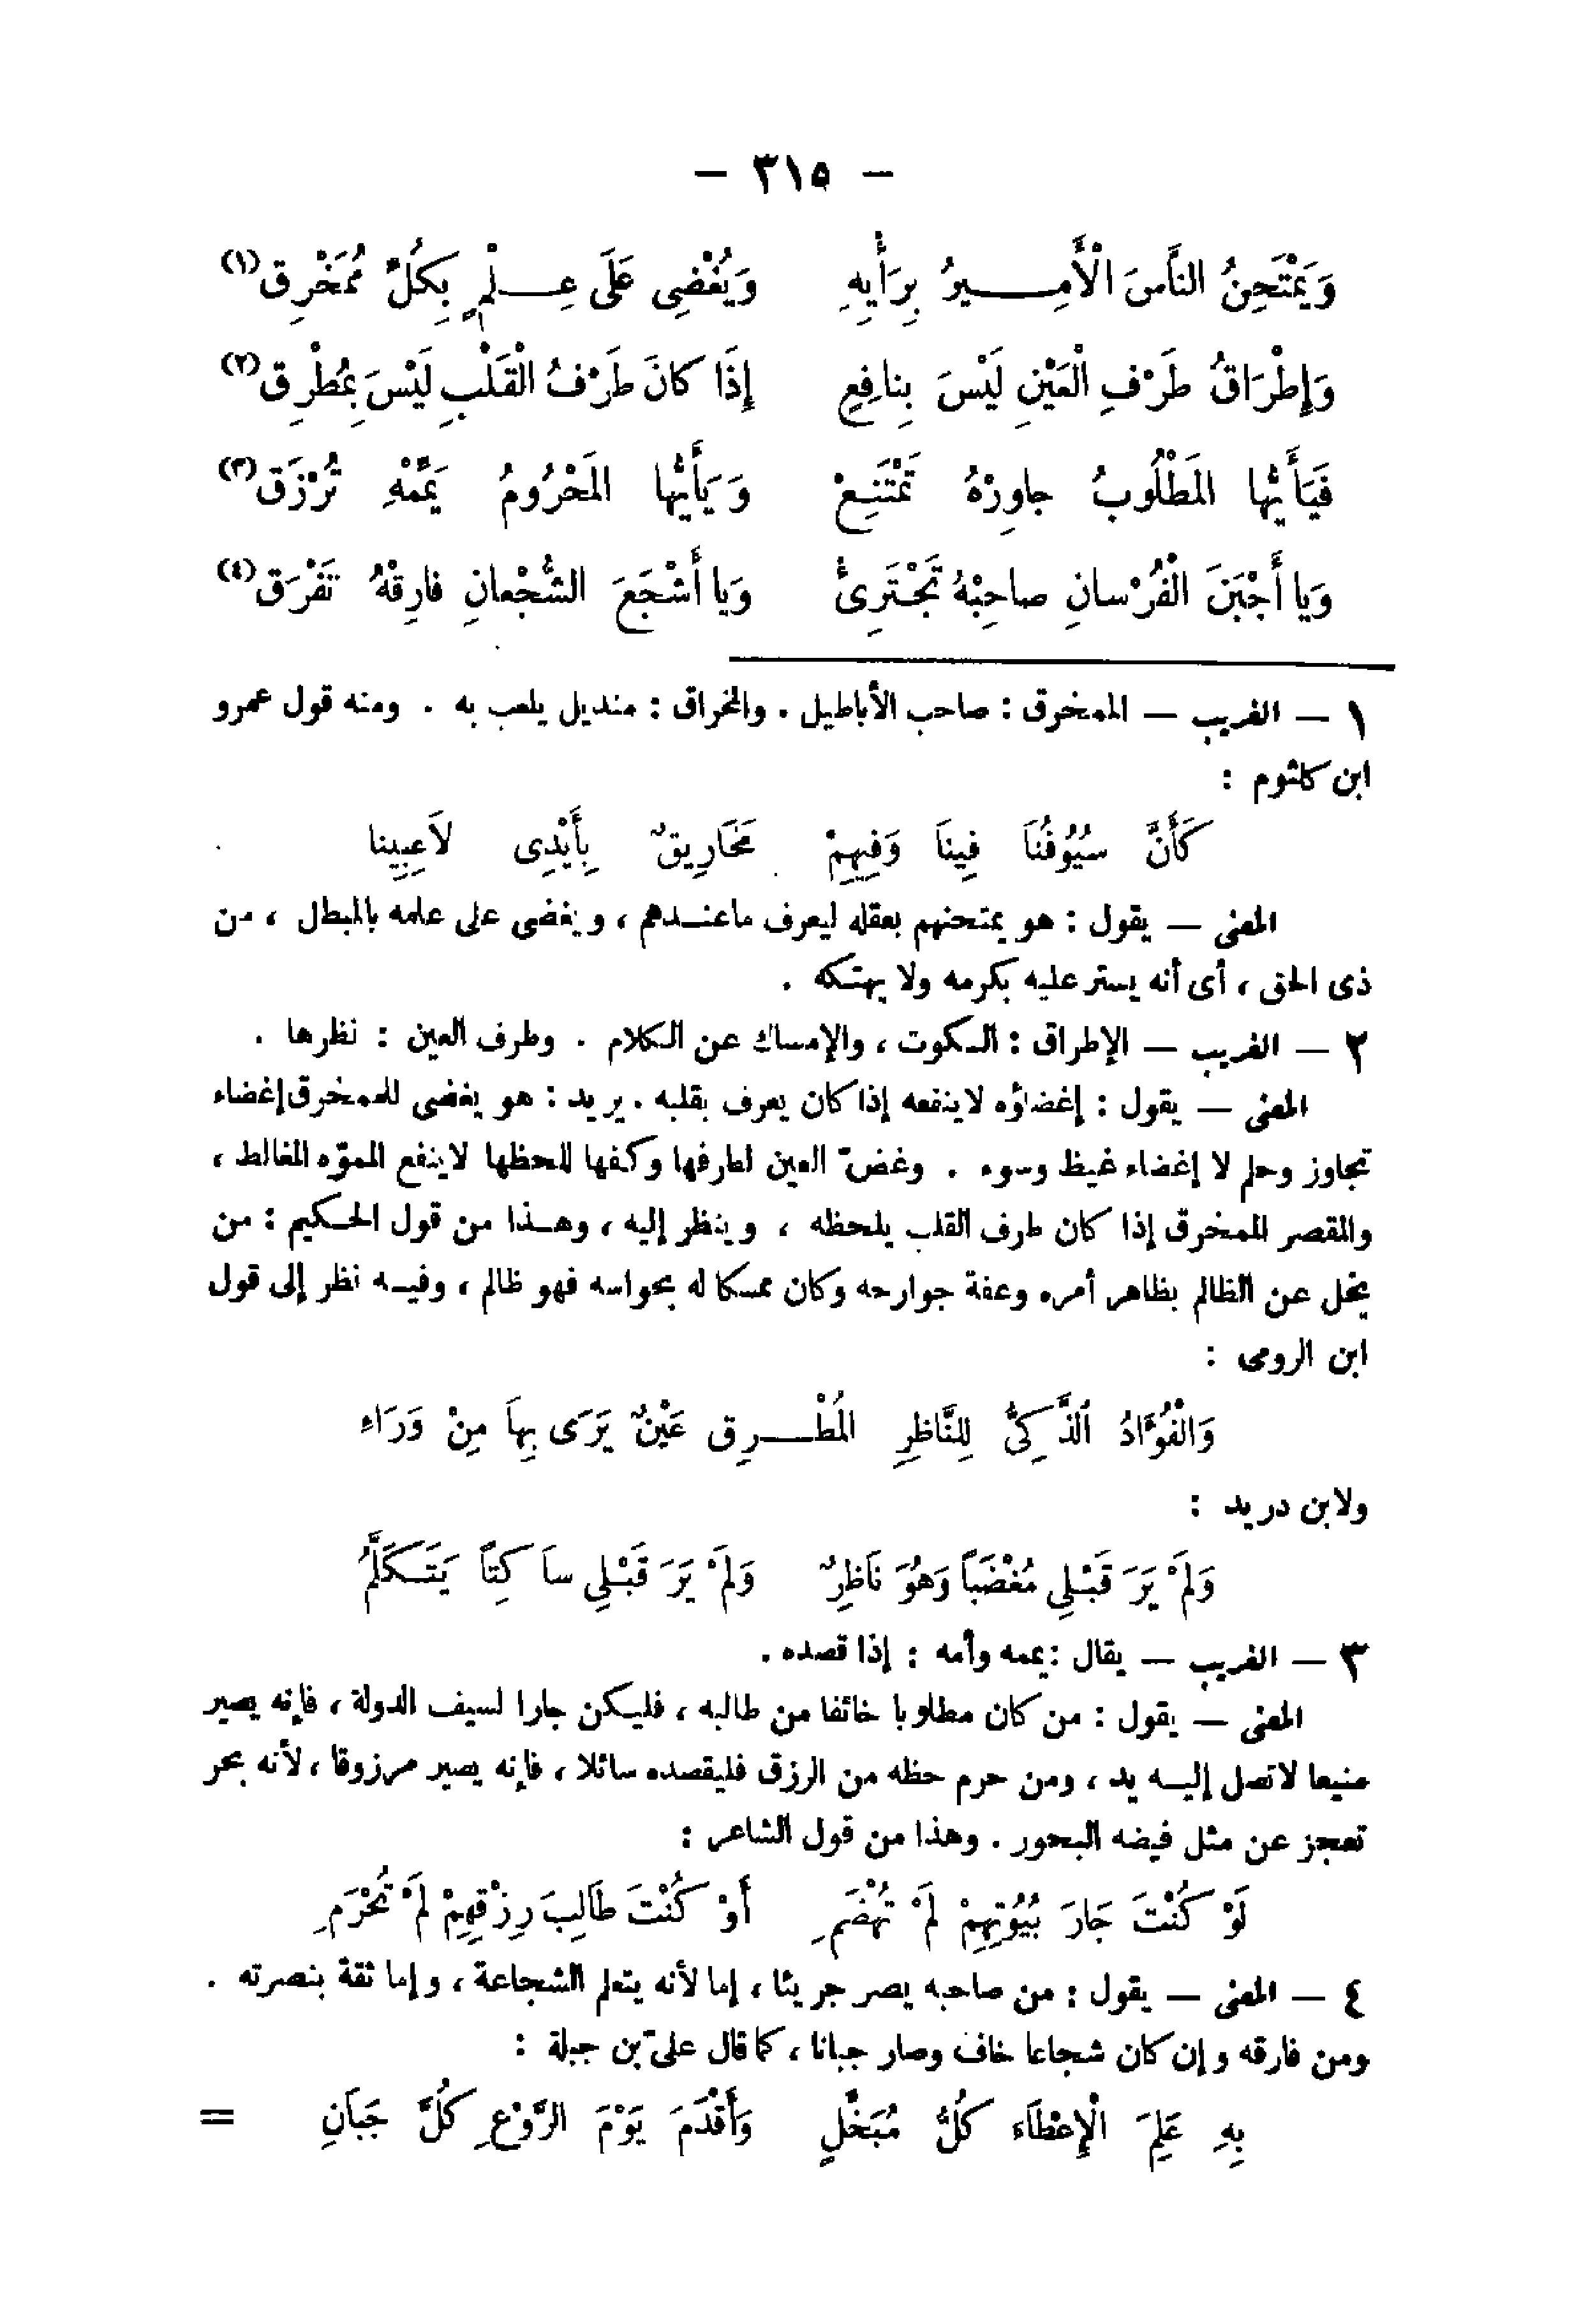 — ٣١٥ —
وَيَمْتَحِنُ النَّاسَ الْأَمِـــيرُ بِرَأْيِهِ وَيُغْضِى عَلَى عِـــلْمٍ بِكُلِّ مُمَخْرِقِ(١)
وَإِطْرَاقُ طَرْفِ الْعَيْنِ لَيْسَ بِنافِعٍ إِذَا كانَ طَرْفُ الْقَلْبِ لَيْسَ بِمُطْرِقِ(٢)
فَيَأَيُّها المَطْلُوبُ جاوِرْهُ تَمْتَنِعْ وَيَأَيُّها المَحْرُومُ يَمِّمْهُ تُرْزَقِ(٣)
وَيا أَجْبَنَ الْفُرْسانِ صاحِبْهُ تَجْتَرِئْ وَيا أَشْجَعَ الشُّجْعانِ فارِقْهُ تَفْرَقِ(٤)
١ — الغريب — الممخرق : صاحب الأباطيل . والمخراق : منديل يلعب به . ومنه قول عمرو
ابن كلثوم :
كَأَنَّ سُيُوفُنَا فِينَا وَفِيهِمْ مَخَارِيقٌ بِأَيْدِى لاَعِبِينا
المعنى — يقول : هو يمتحنهم بعقله ليعرف ماعنـدهم ، ويغضى على علمه بالمبطل ، من
ذى الحق ، أى أنه يستر عليه بكرمه ولا يهتكه .
٢ — الغريب — الإطراق : السكوت ، والإمساك عن الكلام . وطرف العين : نظرها .
المعنى — يقول : إغضاؤه لاينفعه إذا كان يعرف بقلبه . يريد : هو يغضى للممخرق إغضاء
تجاوز وحلم لا إغضاء غيظ وسوء . وغضّ العين لطرفها وكفها للحظها لاينفع المموّه المغالط ،
والمقصر للمخرق إذا كان طرف القلب يلحظه ، وينظر إليه ، وهـذا من قول الحـكيم : من
يخل عن الظالم بظاهر أمره وعفة جوارحه وكان ممسكا له بحواسه فهو ظالم ، وفيـه نظر إلى قول
ابن الرومى :
وَالْفُوَّادُ الذَّكِىُّ لِلنَّاظِرِ المُطْـــرِقِ عَيْنٌ يَرَى بِهَا مِنْ وَرَاءِ
ولابن دريد :
وَلَمْ يَرَ قَبْـلِى مُغْضَبًا وَهُوَ نَاظِرٌ وَلَمْ يَرَ قَبْـلِى سَا كِتًا يَتَـكَلَّمُ
٣ — الغريب — يقال : يممه وأمه : إذا قصده .
المعنى — يقول : من كان مطلوبا خائفا من طالبه ، فليكن جارا لسيف الدولة ، فإنه يصير
منيعا لاتصل إليـه يد ، ومن حرم حظه من الرزق فليقصده سائلا ، فإنه يصير مرزوقا ، لأنه بحر
تعجز عن مثل فيضه البحور . وهذا من قول الشاعر :
لَوْ كُنْتَ جَارَ بُيُوتِهِمْ لَمْ تُهْضَمِ أَوْ كُنْتَ طَالِبَ رِزْقِهِمْ لَمْ تُحْرَمِ
٤ — المعنى — يقول : من صاحبه يصر جريئا ، إما لأنه يتعلم الشجاعة ، وإما ثقة بنصرته .
ومن فارقه وإن كان شجاعا خاف وصار جبانا ، كما قال علىّ بن جبلة :
بِهِ عَلِمَ الْإِعْطَاءَ كُلُّ مُبَخَّلٍ وَأَقْدَمَ يَوْمَ الرَّوْعِ كُلُّ جَبَانِ =